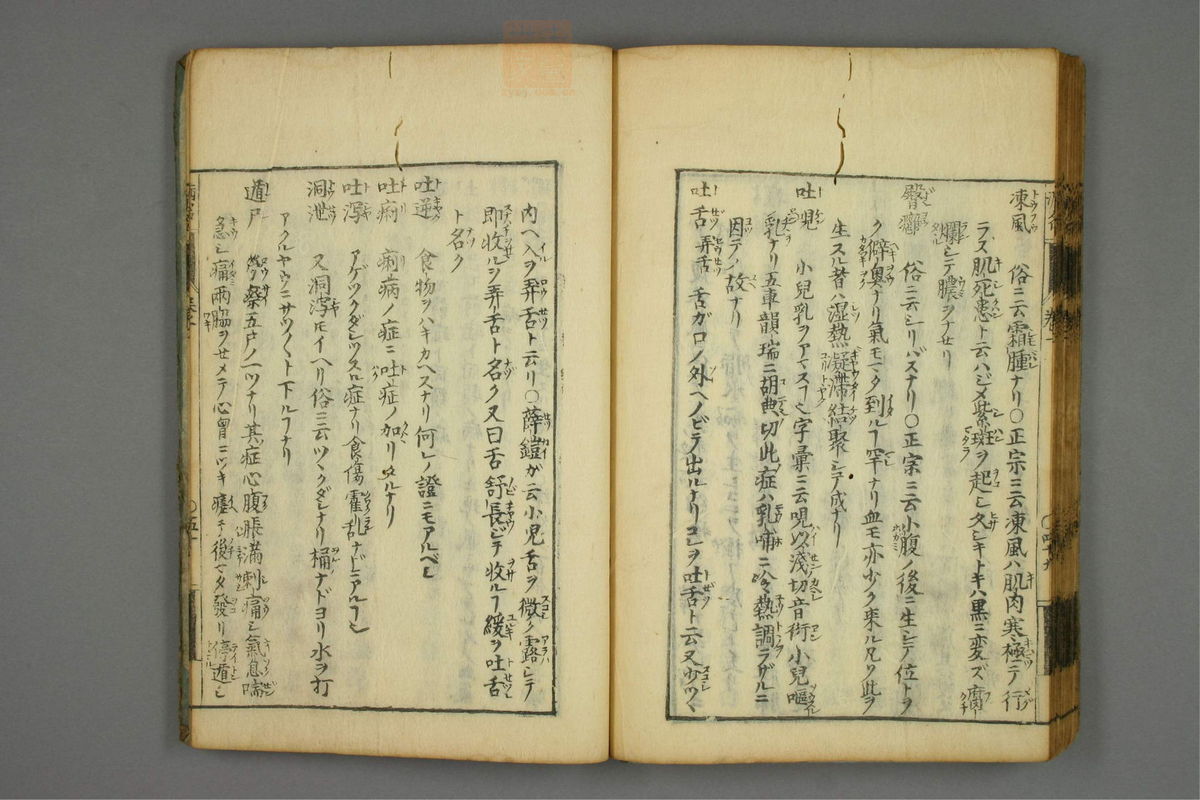 凍風　俗ニ云霜腫ナリ〇正宗ニ云凍風ハ肌肉寒極テ行
ラズ肌死患ト云ハジメ紫斑ヲ起シ久シキトキハ黒ニ変ズ腐
爛シテ膿ヲナセリ
臀癰　俗ニ云シリバスナリ〇正宗ニ云小腹ノ後ニ生シテ位トヲ
ク僻奥ナリ氣モマタ到ルヿ罕ナリ血モ亦少ク来ル凡ソ此ヲ
生スル者ハ湿熱凝滞結聚シテ成ナリ
吐哯　小兒乳ヲアマスヿ也字彙ニ云哯以淺切音衍小兒嘔
乳ナリ五車韻瑞ニ胡典切此症ハ乳哺ニ冷熱調ラザルニ
因テノ故ナリ
吐舌弄舌　舌ガ口ノ外ヘノビテ出ルナリコレヲ吐舌ト云又少ツヽ
内ヘ入ヲ弄舌ト云リ〇薛鎧が云小児舌ヲ微ク露シテ
即收ルヲ弄舌ト名ク又曰舌舒長シテ收ルヿ緩ヲ吐舌
ト名ク
吐逆　食物ヲハキカヘスナリ何レノ證ニモアルベシ
吐痢　痢病ノ症ニ吐症ノ加リタルナリ
吐瀉　アゲツクダシツスル症ナリ食傷霍乱ナドニアルヿ也
洞泄　又洞瀉トモイヘリ俗ニ云ツヽクダシナリ桶ナドヨリ水ヲ打
アクルヤウニサツ〱ト下ルヿナリ
遁尸　労瘵五尸ノ一ツナリ其症心腹脹満刺痛シ氣息喘
急シ痛両脇ヲせメテ心胷ニツキ癒テ後マタ發リ停遁シ